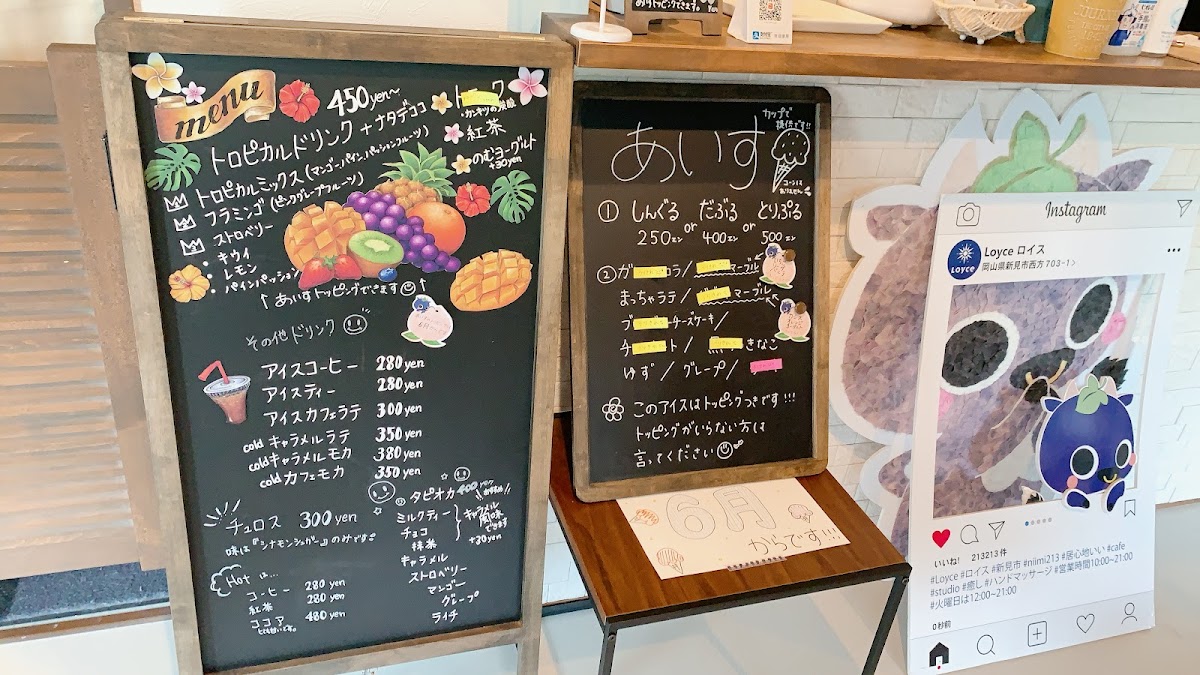 menu
450yen~
トロピカルドリンク + ナタデココ
トロピカルミックス(マンゴー,パイン,パッションフルーツ)
フラミンゴ(ピンクグレープフルーツ)
ストロベリー
・キウイ
・レモン
・パインパッション
↑あいすトッピングできます↑
紅茶
のむヨーグルト
+30yen
その他ドリンク
アイスコーヒー 280yen
アイスティー 280yen
アイスカフェラテ 300yen
cold キャラメルラテ 350yen
cold キャラメルモカ 380yen
cold カフェモカ 350yen
チュロス 300yen
味は『シナモンシュガー』のみです
Hot は...
コーヒー 280yen
紅茶 280yen
ココア 480yen
タピオカ 400yen
おすすめ!!
ミルクティー
チョコ
抹茶
キャラメル風味できます
+30yen
キャラメル
ストロベリー
マンゴー
グレープ
ライチ
あいす
カップで提供です!!
コーンはありません
① しんぐる or だぶる or とりぷる
250エン 400エン 500エン
② ガ ラ/ マーブル
まっちゃラテ/ マーブル
ブ チーズケーキ/
チ ト/ きなこ
ゆず/グレープ/
このアイスはトッピングつきです!!!
トッピングがいらない方は
言ってください
6月
からです!!!
Instagram
Loyce
Loyce ロイス
岡山県新見市西方703-1>
いいね! 213213件
#Loyce #ロイス #新見市 #niimi213 #居心地いい #cafe
#studio #癒し #ハンドマッサージ #営業時間10:00~21:00
#火曜日は12:00~21:00
0秒前